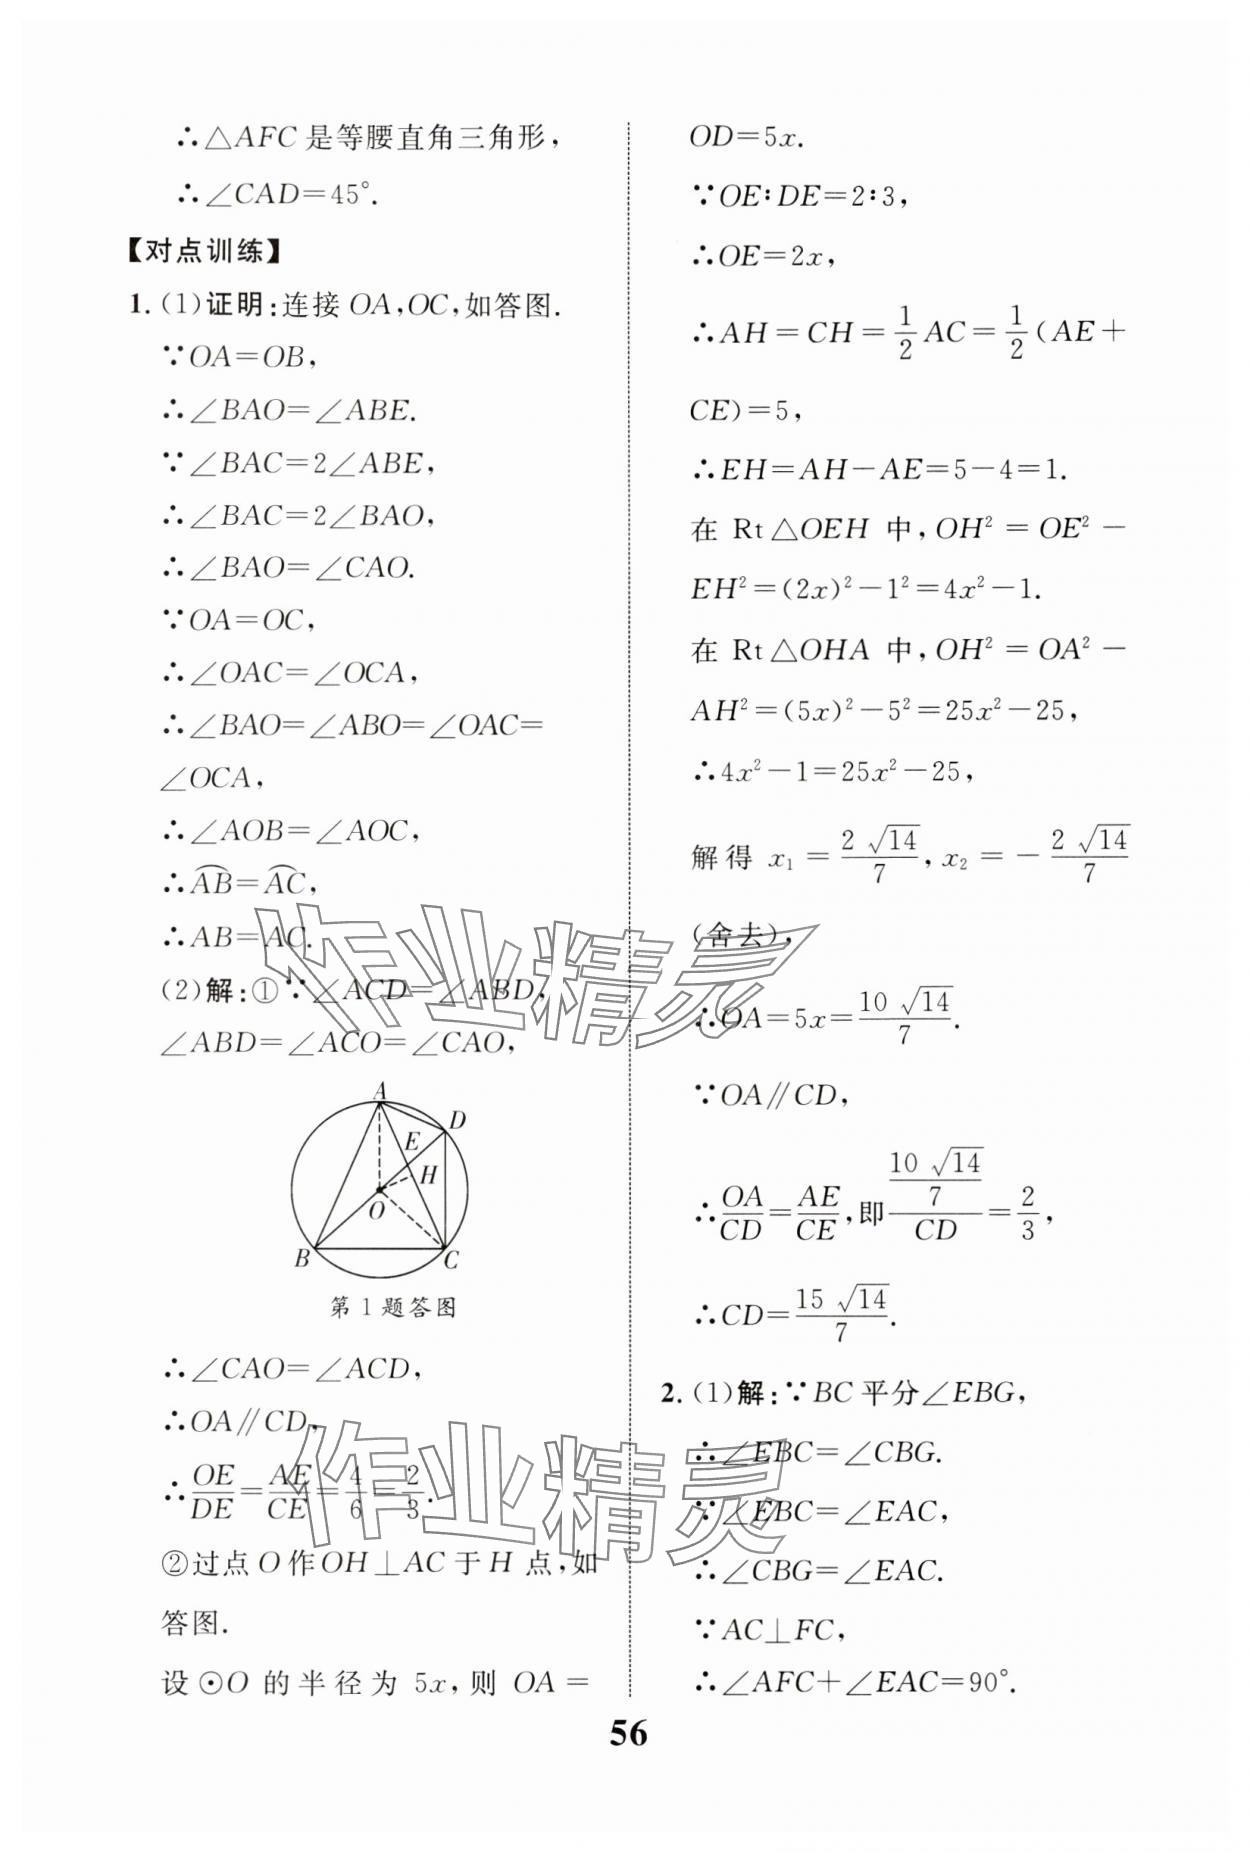 ∴△AFC 是等腰直角三角形，
∴∠CAD=45°.
【对点训练】
1. (1)证明：连接 OA，OC，如答图.
∵OA=OB，
∴∠BAO=∠ABE.
∵∠BAC=2∠ABE，
∴∠BAC=2∠BAO，
∴∠BAO=∠CAO.
∵OA=OC，
∴∠OAC=∠OCA，
∴∠BAO=∠ABO=∠OAC=
∠OCA，
∴∠AOB=∠AOC，
∴⌒AB=⌒AC，
∴AB=AC.
(2)解：①∵∠ACD=∠ABD，
∠ABD=∠ACO=∠CAO，
A
D
E
H
O
B
C
第 1 题答图
∴∠CAO=∠ACD，
∴OA∥CD，
∴OE/DE=AE/CE=4/6=2/3.
②过点 O 作 OH⊥AC 于 H 点，如
答图.
设 ⊙O 的半径为 5x，则 OA=
OD=5x.
∵OE∶DE=2∶3，
∴OE=2x，
∴AH=CH=1/2 AC=1/2 (AE+
CE)=5，
∴EH=AH−AE=5−4=1.
在 Rt△OEH 中，OH²=OE²−
EH²=(2x)²−1²=4x²−1.
在 Rt△OHA 中，OH²=OA²−
AH²=(5x)²−5²=25x²−25，
∴4x²−1=25x²−25，
解得 x₁=2√14/7，x₂=−2√14/7
(舍去)，
∴OA=5x=10√14/7.
∵OA∥CD，
∴OA/CD=AE/CE，即 (10√14/7)/CD=2/3，
∴CD=15√14/7.
2. (1)解：∵BC 平分∠EBG，
∴∠EBC=∠CBG.
∵∠EBC=∠EAC，
∴∠CBG=∠EAC.
∵AC⊥FC，
∴∠AFC+∠EAC=90°.
56
作业精灵
作业精灵